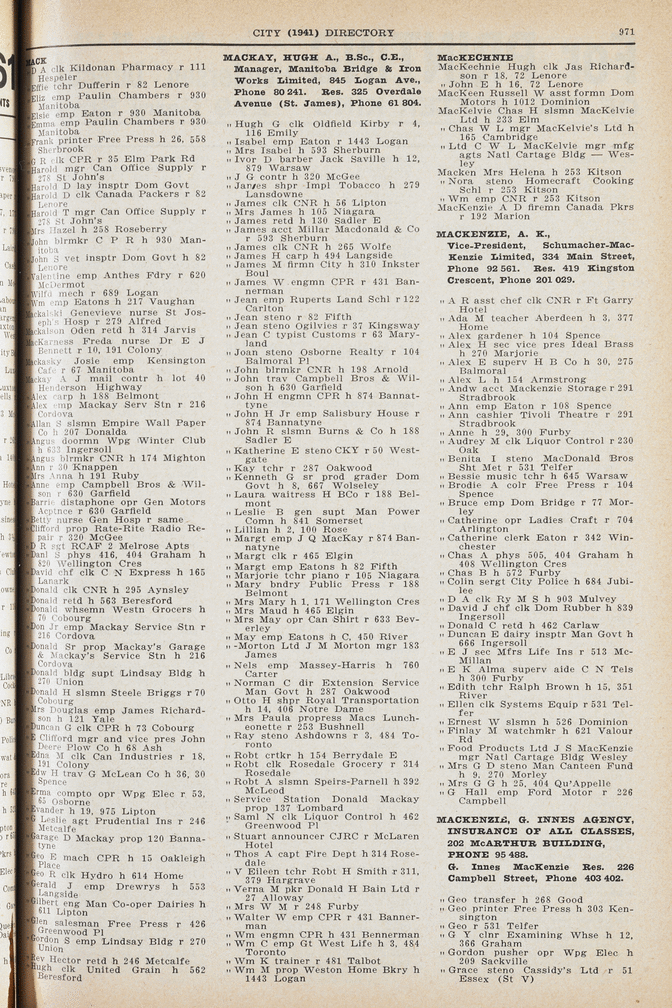 CITY (1941) DIRECTORY
971
MACK
D A clk Kildonan Pharmacy r 111
Hespeler
Effie tchr Dufferin r 82 Lenore
Eliz emp Paulin Chambers r 930
Manitoba
Elsie emp Eaton r 930 Manitoba
Emma emp Paulin Chambers r 930
Manitoba
Frank printer Free Press h 26, 558
Sherbrook
G R clk CPR r 35 Elm Park Rd
Harold mgr Can Office Supply r
278 St John's
Harold D lay insptr Dom Govt
Harold D clk Canada Packers r 82
Lenore
Harold T mgr Can Office Supply r
278 St John's
Mrs Hazel h 258 Roseberry
John blrmkr C P R h 930 Man-
itoba
John S vet insptr Dom Govt h 82
Lenore
Valentine emp Anthes Fdry r 620
McDermot
Wilfd mech r 689 Logan
Wm emp Eatons h 217 Vaughan
Mackalski Genevieve nurse St Jos-
eph's Hosp r 279 Alfred
Mackalson Oden retd h 314 Jarvis
MacKarness Freda nurse Dr E J
Bennett r 10, 191 Colony
Mackasky Josie emp Kensington
Cafe r 67 Manitoba
Mackay A J mail contr h lot 40
Henderson Highway
Alex carp h 188 Belmont
Alex emp Mackay Serv Stn r 216
Cordova
Allan S slsmn Empire Wall Paper
Co h 207 Donalda
Angus doormn Wpg Winter Club
h 633 Ingersoll
Angus blrmkr CNR h 174 Mighton
Ann r 30 Knappen
Mrs Anna h 191 Ruby
emp Campbell Bros & Wil-
son r 630 Garfield
Barrie distaphone opr Gen Motors
Acptnce r 630 Garfield
Betty nurse Gen Hosp r same
Clifford prop Rate-Rite Radio Re-
pair r 320 McGee
D R sgt RCAF 2 Melrose Apts
Danl S phys 416, 404 Graham h
820 Wellington Cres
David chf clk C N Express h 165
Lanark
Donald clk CNR h 295 Aynsley
Donald retd h 563 Beresford
Donald whsemn Westn Grocers h
70 Cobourg
Don Jr emp Mackay Service Stn r
216 Cordova
Donald Sr prop Mackay's Garage
& Mackay's Service Stn h 216
Cordova
Donald bldg supt Lindsay Bldg h
270 Union
Donald H slsmn Steele Briggs r 70
Cobourg
Mrs Douglas emp James Richard-
son h 121 Yale
Duncan G clk CPR h 73 Cobourg
E Clifford mgr and vice pres John
Deere Plow Co h 68 Ash
Edna M clk Can Industries r 18,
191 Colony
Edw H trav G McLean Co h 36, 30
Spence
Erma compto opr Wpg Elec r 53,
65 Osborne
Evander h 19, 975 Lipton
G Leslie agt Prudential Ins r 246
Metcalfe
Garage D Mackay prop 120 Banna-
tyne
Geo E mach CPR h 15 Oakleigh
Place
Geo R clk Hydro h 614 Home
Gerald J emp Drewrys h 553
Langside
Gilbert eng Man Co-oper Dairies h
611 Lipton
Glen salesman Free Press r 426
Greenwood Pl
Gordon S emp Lindsay Bldg r 270
Union
Rev Hector retd h 246 Metcalfe
Hugh clk United Grain h 562
Beresford
MACKAY, HUGH A., B.Sc., C.E.,
Manager, Manitoba Bridge & Iron
Works Limited, 845 Logan Ave.,
Phone 80 241. Res. 325 Overdale
Avenue (St. James), Phone 61 804.
" Hugh G clk Oldfield Kirby r 4,
116 Emily
" Isabel emp Eaton r 1443 Logan
" Mrs Isabel h 593 Sherburn
" Ivor D barber Jack Saville h 12,
879 Warsaw
" J G contr h 320 McGee
" James shpr Impl Tobacco h 279
Lansdowne
" James clk CNR h 56 Lipton
" Mrs James h 105 Niagara
" James retd h 130 Sadler E
" James acct Millar Macdonald & Co
r 593 Sherburn
" James clk CNR h 265 Wolfe
" James H carp h 494 Langside
" James M firmn City h 310 Inkster
Boul
" James W engmn CPR r 431 Ban-
nerman
" Jean emp Ruperts Land Schl r 122
Carlton
" Jean steno r 82 Fifth
" Jean steno Ogilvies r 37 Kingsway
" Jean C typist Customs r 63 Mary-
land
" Joan steno Osborne Realty r 104
Balmoral Pl
" John blrmkr CNR h 198 Arnold
" John trav Campbell Bros & Wil-
son h 630 Garfield
" John H engmn CPR h 874 Bannat-
tyne
" John H Jr emp Salisbury House r
874 Bannatyne
" John R slsmn Burns & Co h 188
Sadler E
" Katherine E steno CKY r 50 West-
gate
" Kay tchr r 287 Oakwood
" Kenneth G sr prod grader Dom
Govt h 8, 667 Wolseley
" Laura waitress H B Co r 188 Bel-
mont
" Leslie B gen supt Man Power
Comn h 841 Somerset
" Lillian h 2, 100 Rose
" Margt emp J Q MacKay r 874 Ban-
natyne
" Margt clk r 465 Elgin
" Margt emp Eatons h 82 Fifth
" Marjorie tchr piano r 105 Niagara
" Mary bndry Public Press r 188
Belmont
" Mrs Mary h 1, 171 Wellington Cres
" Mrs Maud h 465 Elgin
" Mrs May opr Can Shirt r 633 Bev-
erley
" May emp Eatons h C, 450 River
" -Morton Ltd J M Morton mgr 183
James
" Nels emp Massey-Harris h 760
Carter
" Norman C dir Extension Service
Man Govt h 287 Oakwood
" Otto H shpr Royal Transportation
h 14, 406 Notre Dame
" Mrs Paula propress Macs Lunch-
eonette r 253 Bushnell
" Ray steno Ashdowns r 3, 484 To-
ronto
" Robt crtkr h 154 Berrydale E
" Robt clk Rosedale Grocery r 314
Rosedale
" Robt A slsmn Speirs-Parnell h 392
McLeod
" Service Station Donald Mackay
prop 137 Lombard
" Saml N clk Liquor Control h 462
Greenwood Pl
" Stuart announcer CJRC r McLaren
Hotel
" Thos A capt Fire Dept h 314 Rose-
dale
" V Eileen tchr Robt H Smith r 311,
379 Hargrave
" Verna M pkr Donald H Bain Ltd r
27 Alloway
" Mrs W M r 248 Furby
" Walter W emp CPR r 431 Banner-
man
" Wm engmn CPR h 431 Bennerman
" Wm C emp Gt West Life h 3, 484
Toronto
" Wm K trainer r 481 Talbot
" Wm M prop Weston Home Bkry h
1443 Logan
MacKECHNIE
MacKechnie Hugh clk Jas Richard-
son r 18, 72 Lenore
" John E h 16, 72 Lenore
MacKeen Russell W asst formn Dom
Motors h 1012 Dominion
MacKelvie Chas H slsmn MacKelvie
Ltd h 233 Elm
" Chas W L mgr MacKelvie's Ltd h
165 Cambridge
" Ltd C W L MacKelvie mgr mfg
agts Natl Cartage Bldg — Wes-
ley
Macken Mrs Helena h 253 Kitson
" Nora steno Homecraft Cooking
Schl r 253 Kitson
" Wm emp CNR r 253 Kitson
MacKenzie A D firemn Canada Pkrs
r 192 Marion
MACKENZIE, A. K.,
Vice-President, Schumacher-Mac-
Kenzie Limited, 334 Main Street,
Phone 92 561. Res. 419 Kingston
Crescent, Phone 201 029.
" A R asst chef clk CNR r Ft Garry
Hotel
" Ada M teacher Aberdeen h 3, 377
Home
" Alex gardener h 104 Spence
" Alex H sec vice pres Ideal Brass
h 270 Marjorie
" Alex E superv H B Co h 30, 275
Balmoral
" Alex L h 154 Armstrong
" Andw acct Mackenzie Storage r 291
Stradbrook
" Ann emp Eaton r 108 Spence
" Ann cashier Tivoli Theatre r 291
Stradbrook
" Anne h 29, 300 Furby
" Audrey M clk Liquor Control r 230
Oak
" Benita I steno MacDonald Bros
Sht Met r 531 Telfer
" Bessie music tchr h 645 Warsaw
" Brodie A colr Free Press r 104
Spence
" Bruce emp Dom Bridge r 77 Mor-
ley
" Catherine opr Ladies Craft r 704
Arlington
" Catherine clerk Eaton r 342 Win-
chester
" Chas A phys 505, 404 Graham h
408 Wellington Cres
" Chas B h 572 Furby
" Colin sergt City Police h 684 Jubi-
lee
" D A clk Ry M S h 903 Mulvey
" David J chf clk Dom Rubber h 839
Ingersoll
" Donald C retd h 462 Carlaw
" Duncan E dairy insptr Man Govt h
666 Ingersoll
" E J sec Mfrs Life Ins r 513 Mc-
Millan
" E K Alma superv aide C N Tels
h 300 Furby
" Edith tchr Ralph Brown h 15, 351
River
" Ellen clk Systems Equip r 531 Tel-
fer
" Ernest W slsmn h 526 Dominion
" Finlay M watchmkr h 621 Valour
Rd
" Food Products Ltd J S MacKenzie
mgr Natl Cartage Bldg Wesley
" Mrs G D steno Man Canteen Fund
h 9, 270 Morley
" Mrs G G h 25, 404 Qu'Appelle
" G Hall emp Ford Motor r 226
Campbell
MACKENZIE, G. INNES AGENCY,
INSURANCE OF ALL CLASSES,
202 McARTHUR BUILDING,
PHONE 95 488.
G. Innes MacKenzie Res. 226
Campbell Street, Phone 403 402.
" Geo transfer h 268 Good
" Geo printer Free Press h 303 Ken-
sington
" Geo r 531 Telfer
" G Y clnr Examining Whse h 12,
366 Graham
" Gordon pusher opr Wpg Elec h
209 Sackville
" Grace steno Cassidy's Ltd r 51
Essex (St V)